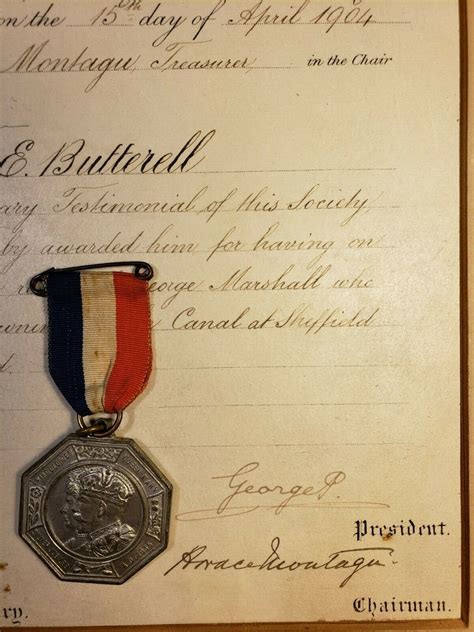 on the 15th day of April 1904
Montagu, Treasurer, in the Chair
E. Butterell
ary Testimonial of this Society
by awarded him for having on
eorge Marshall who
Canal at Sheffield
George P.
President.
Horace Montagu
ry. Chairman.